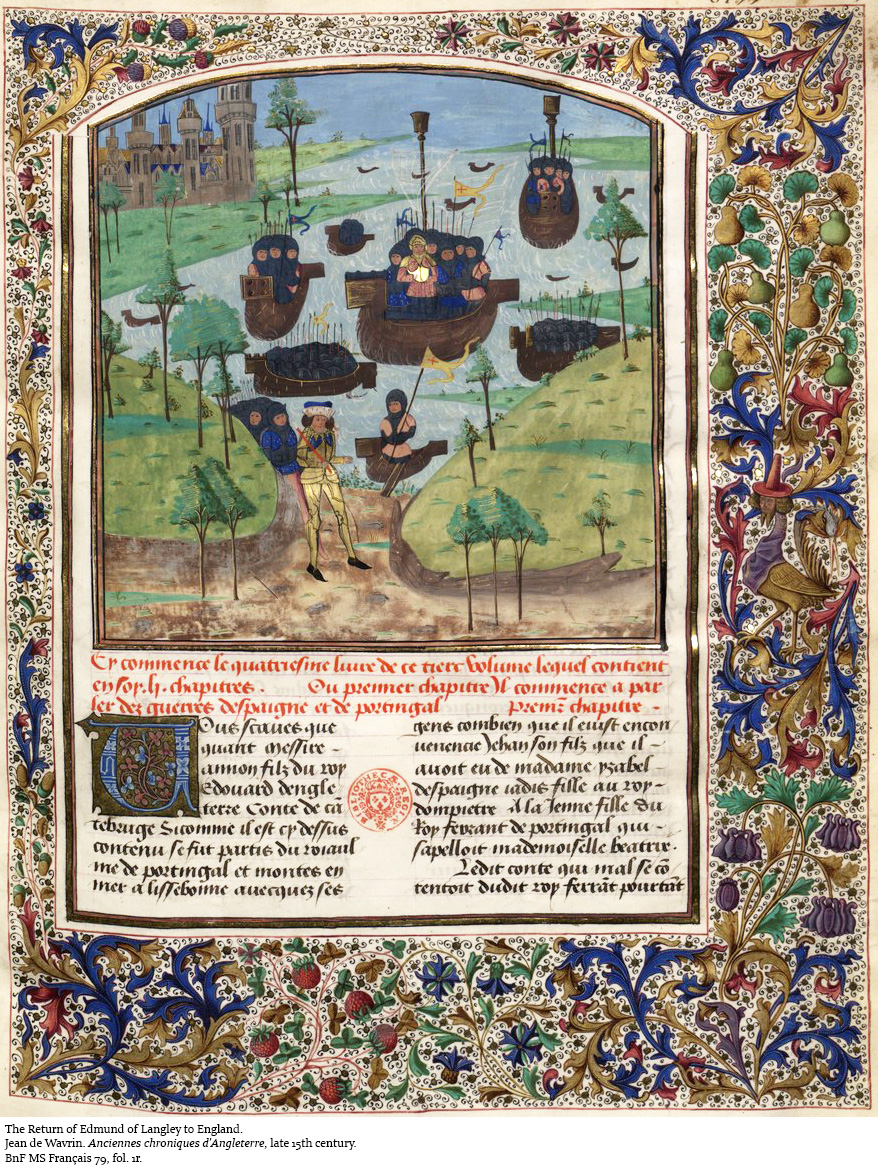 Cy commence le quatriesme livre de ce tiers volume lequel contient
en soy .li. chapitres . Ou premier chapitre Il commence a par
ler des guerres despaigne et de portingal Premr chapitre .
Vous scaves que
quant messire
aimon filz du roy
Edouard dengle
terre Conte de ca
tebruge Sicomme il est cy dessus
contenu se fut partis du roiaul
me de portingal et montes en
mer a lissebonne avecquez ses
gens combien que il euist encon
venencie Jehan son filz que il
avoit eu de madame yzabel
despaigne iadis fille au roy
dompietre A la Jenne fille du
Roy ferrant de portingal qui
sapelloit mademoiselle beatrix.
Ledit conte qui mal se co
tentoit dudit roy ferrat pourtat
The Return of Edmund of Langley to England.
Jean de Wavrin. Anciennes chroniques d'Angleterre, late 15th century.
BnF MS Français 79, fol. 1r.